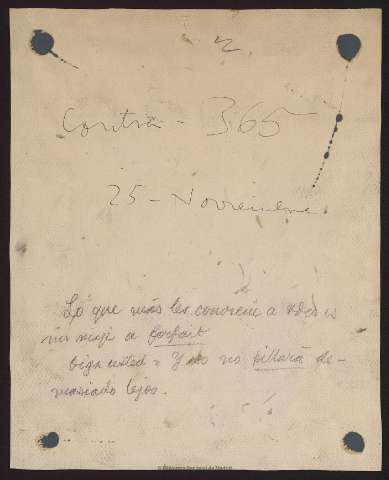 2
Contra - 365
25 - Noviembre
Lo que más les conviene a Vdes es
un viaje a forfait
Oiga usted = Y eso no pillará de-
masiado lejos.
© Biblioteca Nacional de Madrid